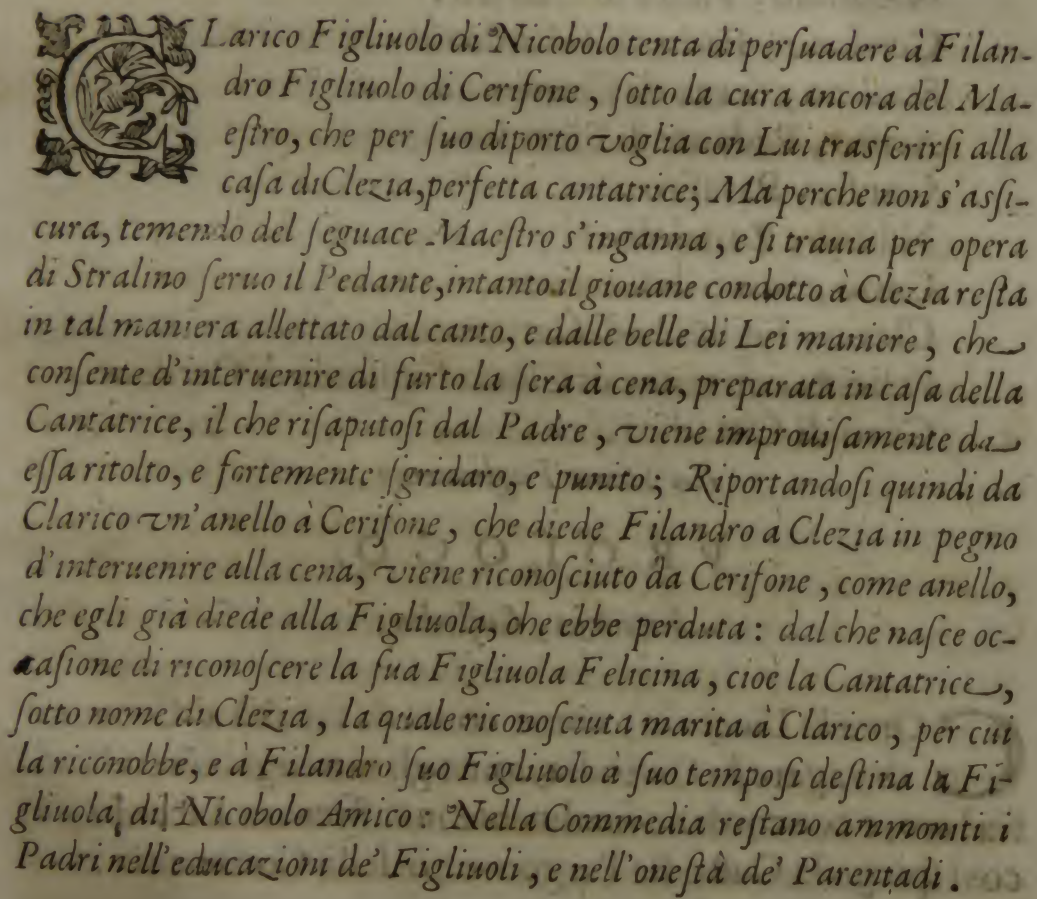 CLarico Figliuolo di Nicobolo tenta di perſuadere à Filan-
dro Figliuolo di Ceriſone, ſotto la cura ancora del Ma-
eſtro, che per ſuo diporto voglia con Lui trasferirſi alla
caſa di Clezia, perfetta cantatrice; Ma perche non s'aſſi-
cura, temendo del ſeguace Maeſtro s'inganna, e ſi trauia per opera
di Stralino ſeruo il Pedante, intanto il giouane condotto à Clezia reſta
in tal maniera allettato dal canto, e dalle belle di Lei maniere, che
conſente d'interuenire di furto la ſera à cena, preparata in caſa della
Cantatrice, il che riſaputoſi dal Padre, viene improuiſamente da
eſſa ritolto, e fortemente ſgridaro, e punito; Riportandoſi quindi da
Clarico vn'anello à Ceriſone, che diede Filandro a Clezia in pegno
d'interuenire alla cena, viene riconoſciuto da Ceriſone, come anello,
che egli già diede alla Figliuola, che ebbe perduta: dal che naſce oc-
caſione di riconoſcere la ſua Figliuola Felicina, cioè la Cantatrice,
ſotto nome di Clezia, la quale riconoſciuta marita à Clarico, per cui
la riconobbe, e à Filandro ſuo Figliuolo à ſuo tempo ſi deſtina la Fi-
gliuola di Nicobolo Amico: Nella Commedia reſtano ammoniti i
Padri nell'educazioni de' Figliuoli, e nell'oneſtà de' Parentadi.